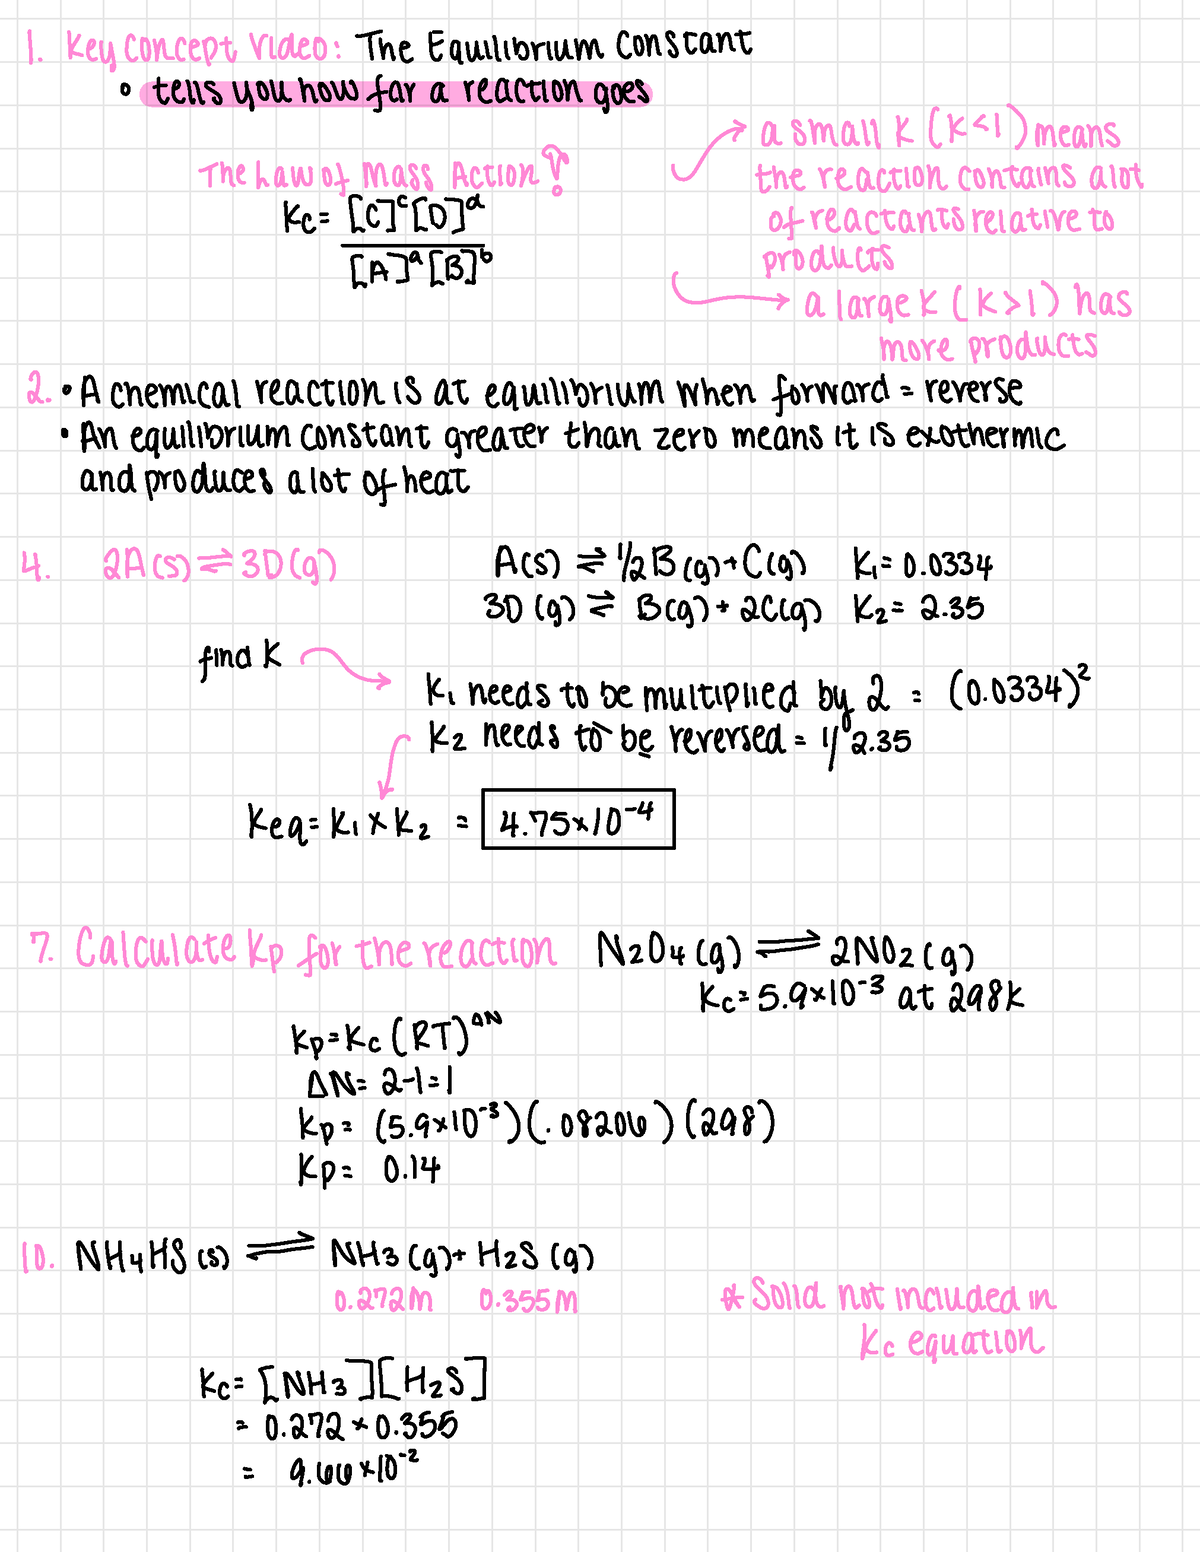 1. Key Concept Video: The Equilibrium Constant
• tells you how far a reaction goes
The Law of Mass Action!
Kc = [C]ᶜ[D]ᵈ
[A]ᵃ[B]ᵇ
→ a small K (K<1) means
the reaction contains alot
of reactants relative to
products
→ a large K (K>1) has
more products
2. • A chemical reaction is at equilibrium when forward = reverse
• An equilibrium constant greater than zero means it is exothermic
and produces alot of heat
4. 2A(s) ⇌ 3D(g)
A(s) ⇌ 1/2 B(g) + C(g) K₁ = 0.0334
3D(g) ⇌ B(g) + 2C(g) K₂ = 2.35
find K
K₁ needs to be multiplied by 2 = (0.0334)²
K₂ needs to be reversed = 1/2.35
Keq = K₁ × K₂ = 4.75×10⁻⁴
7. Calculate Kp for the reaction N2O4(g) ⇌ 2NO2(g)
Kc = 5.9×10⁻³ at 298K
Kp = Kc(RT)^ΔN
ΔN = 2-1 = 1
Kp = (5.9×10⁻³)(.08206)(298)
Kp = 0.14
10. NH4HS(s) ⇌ NH3(g) + H2S(g)
0.272M 0.355M
* Solid not included in
Kc equation
Kc = [NH3][H2S]
= 0.272 × 0.355
= 9.66×10⁻²